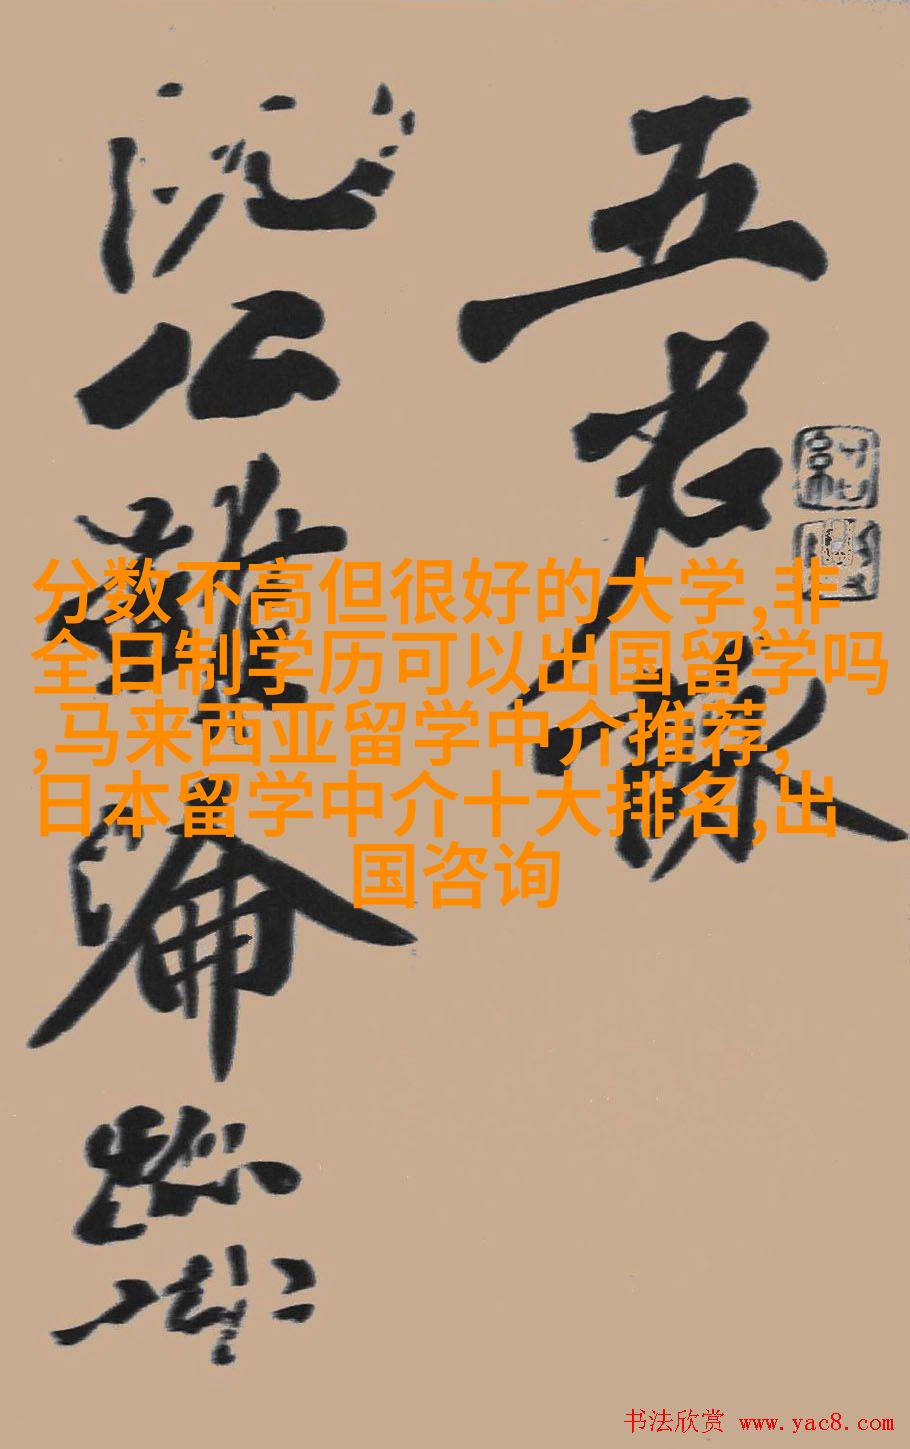 五君咏
阮公
沦
分数不高但很好的大学,非
全日制学历可以出国留学吗
,马来西亚留学中介推荐,
日本留学中介十大排名,出
国咨询
书法欣赏 www.yac8.com